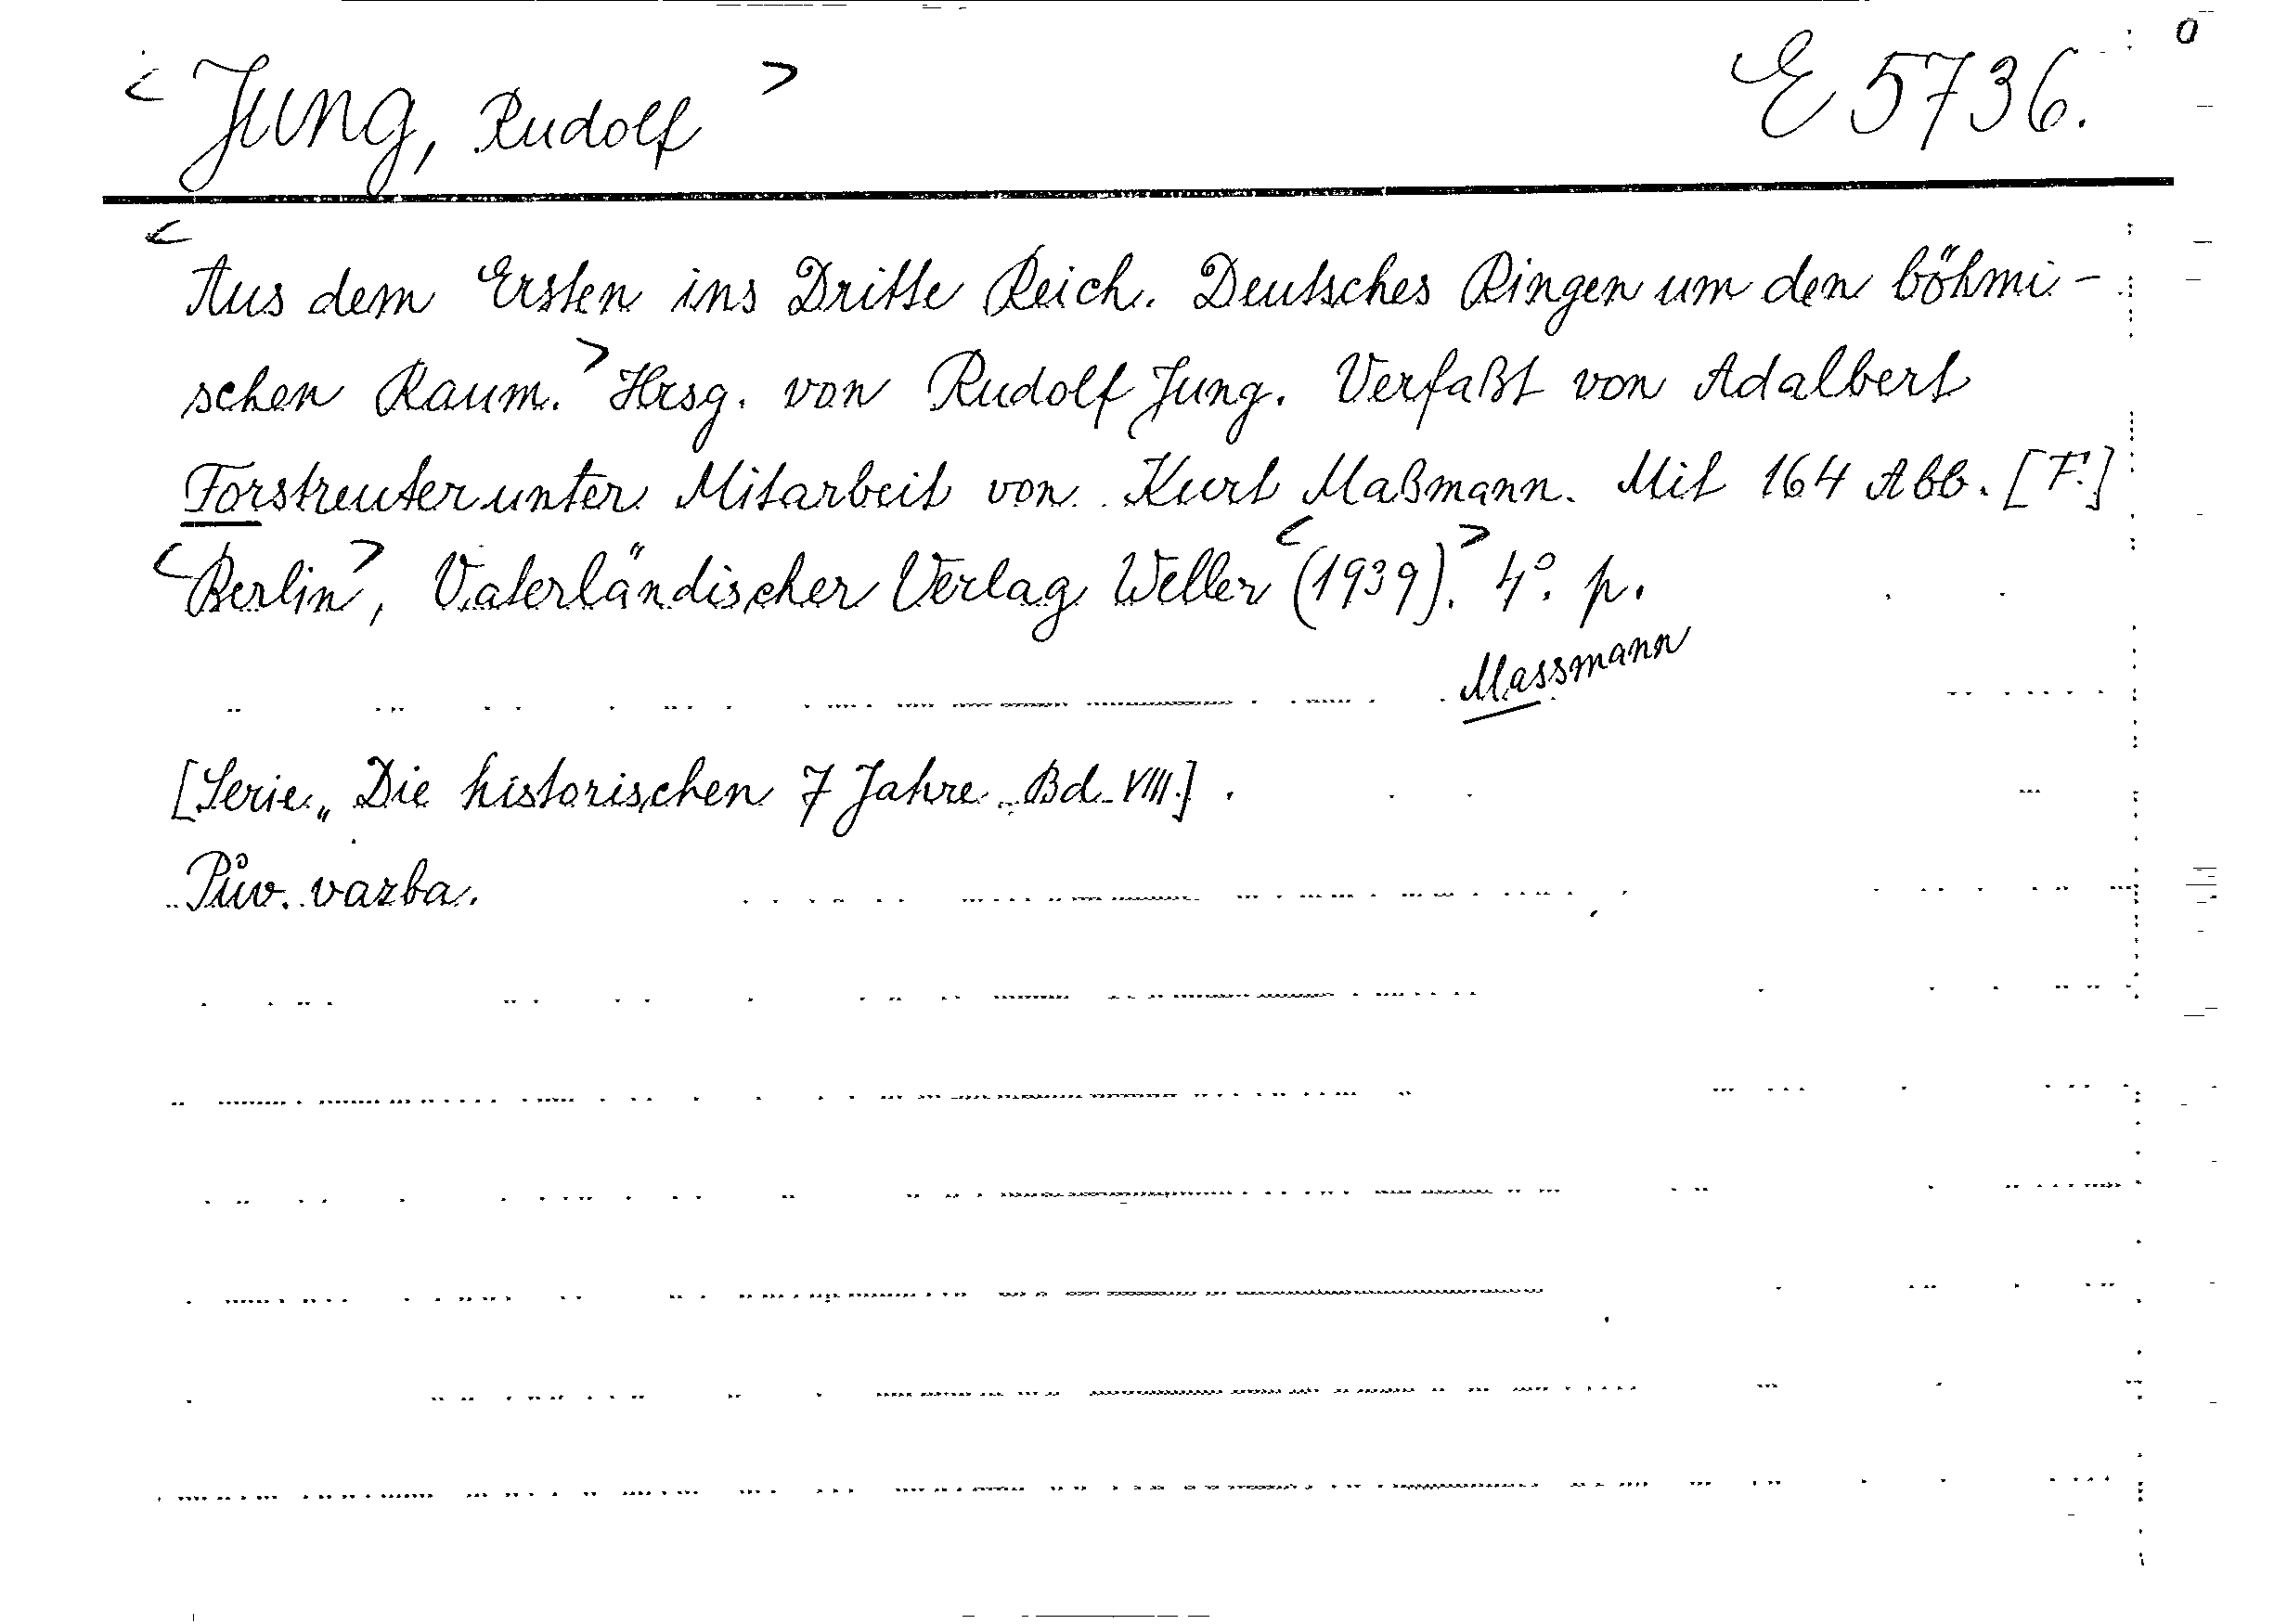 < Jung, Rudolf > E 5736. 0
< Aus dem Ersten ins Dritte Reich. Deutsches Ringen um den böhmi-
schen Raum. > Hrsg. von Rudolf Jung. Verfaßt von Adalbert
Forstreuter unter Mitarbeit von Kurt Maßmann. Mit 164 Abb. [F.]
< Berlin >, Vaterländischer Verlag Weller < (1939). > 4°. p.
Massmann
[Serie „Die historischen 7 Jahre Bd. VIII.]
Pův. vazba.